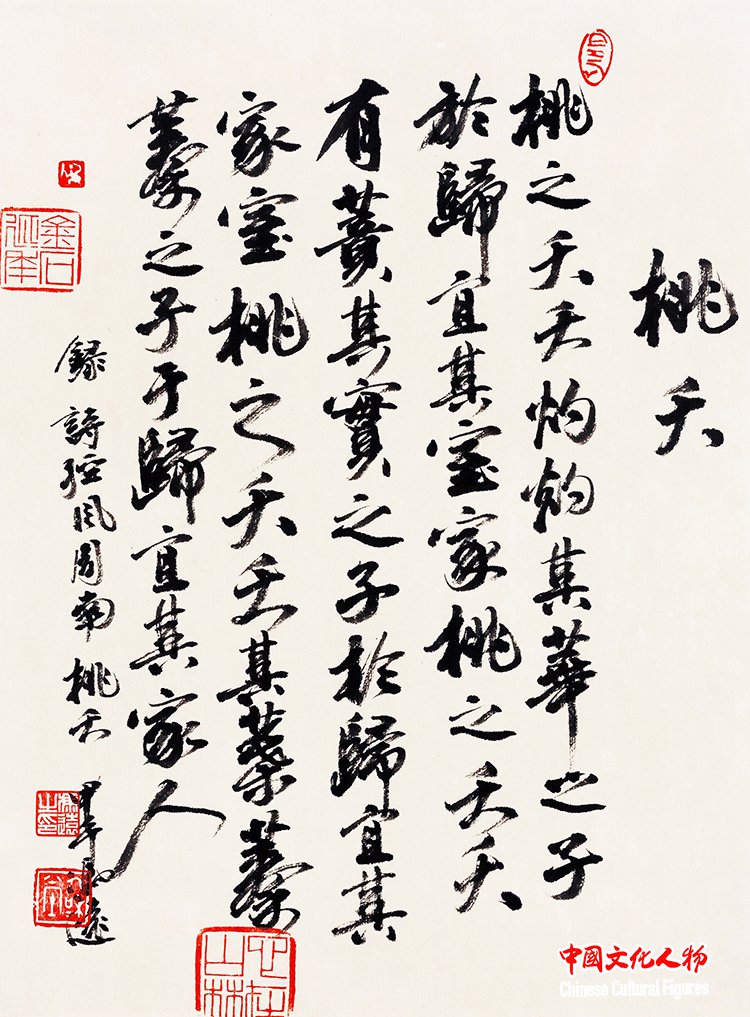 桃夭
桃之夭夭灼灼其華之子
於歸宜其室家桃之夭夭
有蕡其實之子於歸宜其
家室桃之夭夭其葉蓁
蓁之子于歸宜其家人
錄詩經風周南桃夭
金石延年
心在山林
中國文化人物
Chinese Cultural Figures